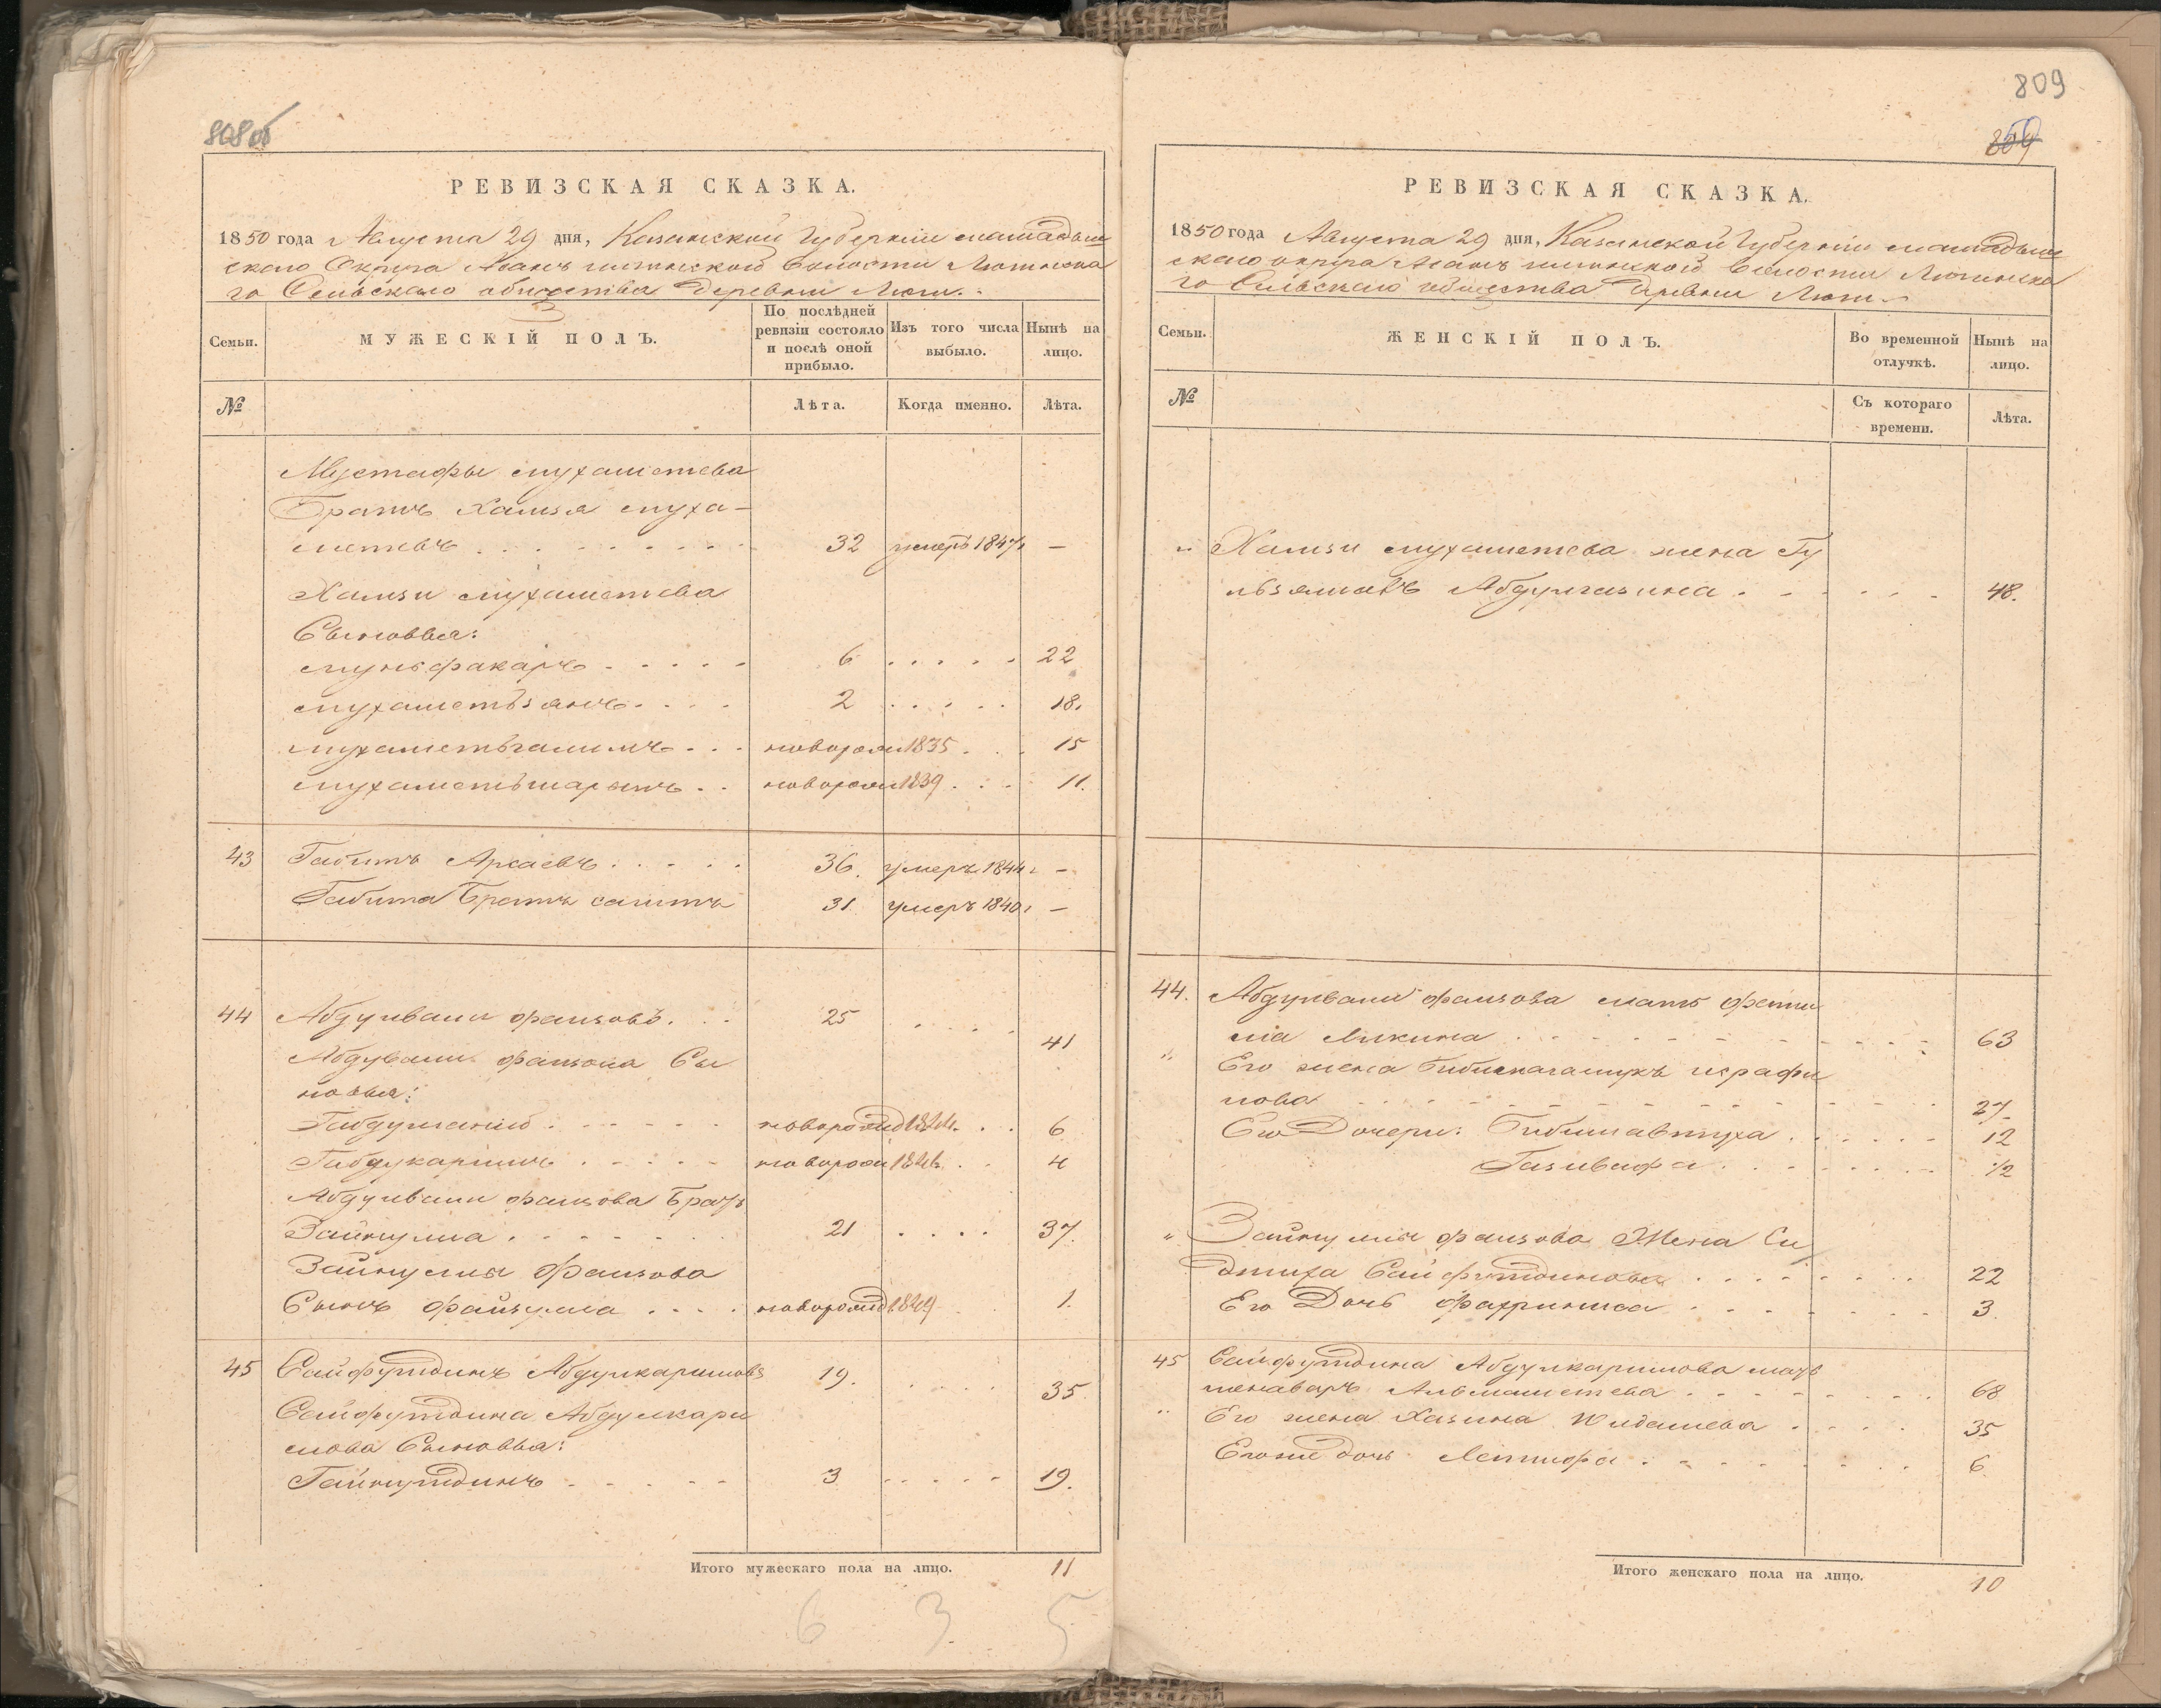 808 об
РЕВИЗСКАЯ СКАЗКА.
1850 года Августа 29 дня, Казанской Губернии мамадыш
скаго Округа Асанъ волости
го Сельскаго общества деревни
Семьи.
МУЖЕСКІЙ ПОЛЪ.
По послѣдней
ревизіи состояло
и послѣ оной
прибыло.
Изъ того числа
выбыло.
Нынѣ на
лицо.
№
Лѣта.
Когда именно.
Лѣта.
Мустафы мухаметева
Братъ Хамзя муха-
метевъ 32 умеръ 1847 —
Хамзи мухаметева
Сыновья:
6 22
мухаметьзянъ 2 18.
мухаметьгалимъ новорож 1835 15
мухаметьшарыпъ новорож 1839 11.
43 Габитъ 36. умеръ 1844 г —
Габита Братъ сагитъ 31 умеръ 1840 г —
44 Абдулвали фаизовъ 25 41
Абдулвали фаизова Сы
новья:
новорожд 1844 6
Габдукаримъ новорож 1846 4
Абдулвали фаизова Братъ
Зайнулла 21 37.
Зайнуллы Фаизова
Сынъ файзулла новорожд 1849 1.
45 Сайфутдинъ Абдулкаримовъ 19. 35
Сайфутдина Абдулкари
мова Сыновья:
Гайнутдинъ 3 19.
Итого мужескаго пола на лицо. 11
6 3 5
809
РЕВИЗСКАЯ СКАЗКА.
1850 года Августа 29 дня, Казанской Губернии мамадыш
скаго округа Асанъ волости
го Сельскаго общества деревни
Семьи.
ЖЕНСКІЙ ПОЛЪ.
Во временной
отлучкѣ.
Нынѣ на
лицо.
№
Съ котораго
времени.
Лѣта.
" Хамзи мухаметева жена Гу
48.
44. Абдулвали фаизова мать фати
ма 63
" Его жена
27.
Его Дочери: 12
1/2
" Зайнуллы фаизова Жена Са
Сайфутдинова 22
Его Дочь фахриниса 3.
45 Сайфутдина Абдулкаримова мать
68
" Его жена Юлдашева 35
Егоже дочь Латифа 6.
Итого женскаго пола на лицо. 10